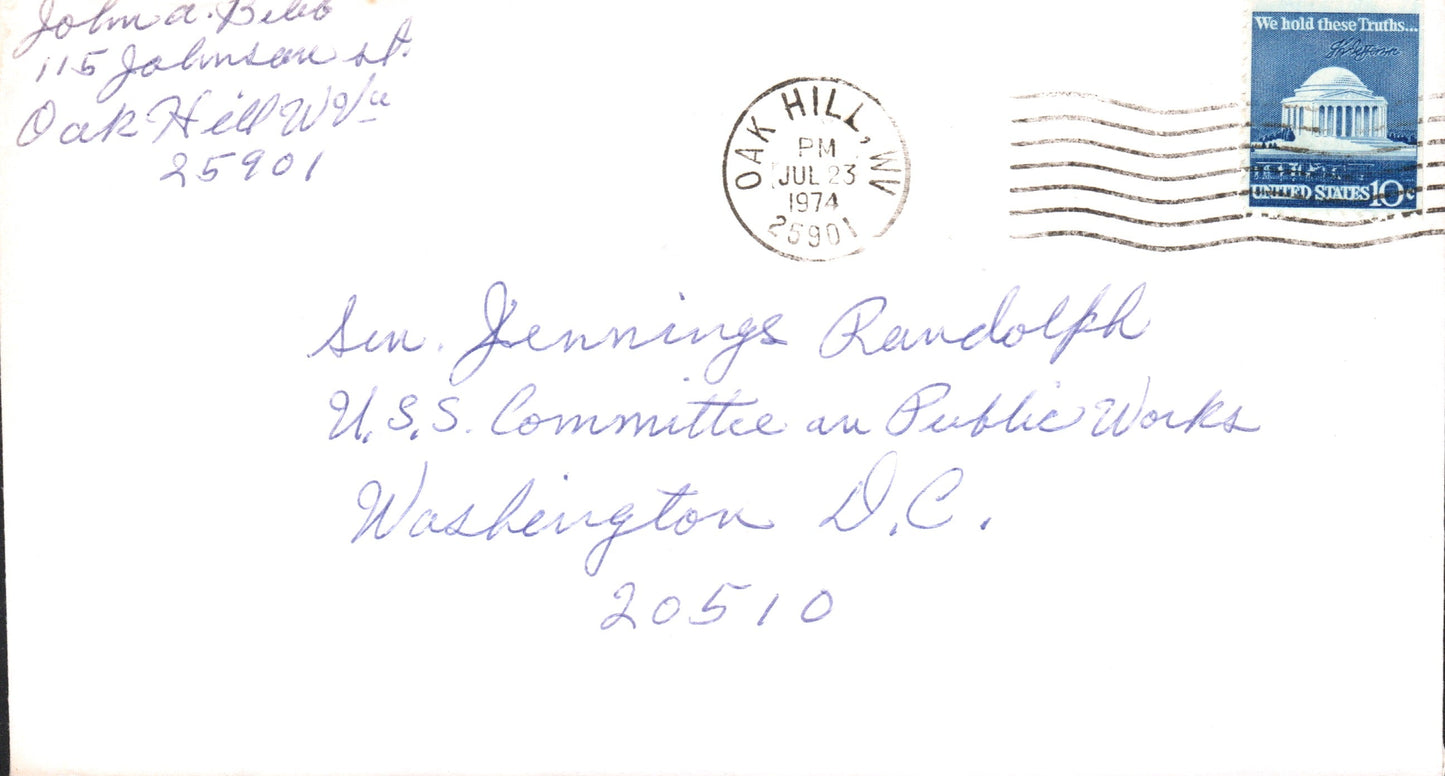 John A. Bibb
115 Johnson St.
Oak Hill W Va
25901
OAK HILL, WV
PM
JUL 23
1974
25901
We hold these Truths...
UNITED STATES 10c
Sen. Jennings Randolph
U.S.S. Committee on Public Works
Washington D.C.
20510